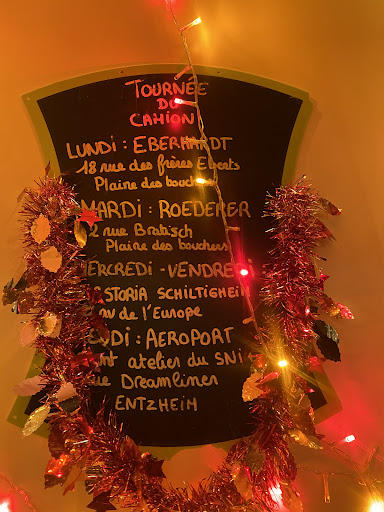 TOURNÉE
DU
CAMION
LUNDI : EBERHARDT
18 rue des frères Eberts
Plaine des bouchers
MARDI : ROEDERER
2 rue Bratisch
Plaine des bouchers
MERCREDI - VENDREDI
STORIA SCHILTIGHEIM
de l'Europe
DI : AEROPORT
atelier du SNI
Dreamliner
ENTZHEIM